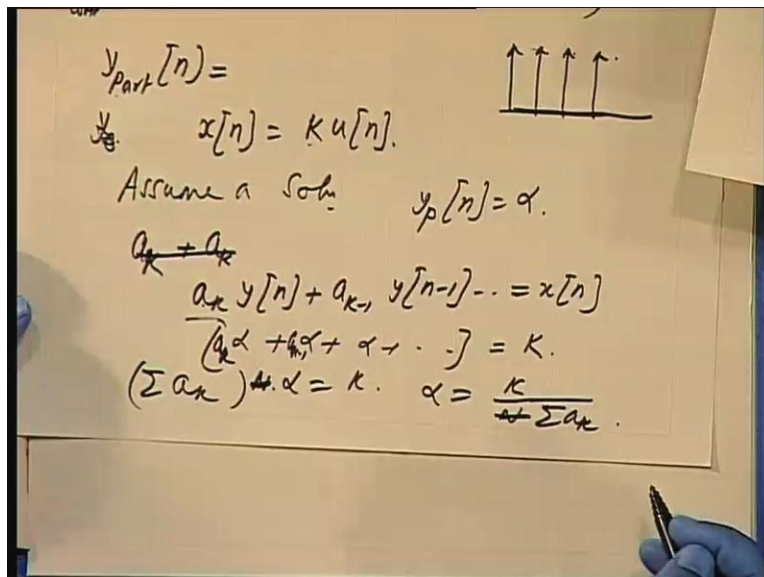 y_part[n] =
x[n] = K u[n].
Assume a soln. y_p[n] = α.
a_k + a_k
a_k y[n] + a_{k-1} y[n-1] -- = x[n]
[a_k α + a_{k-1} α + α + . . ] = K.
(Σ a_k) α = K. α = K / Σ a_k .